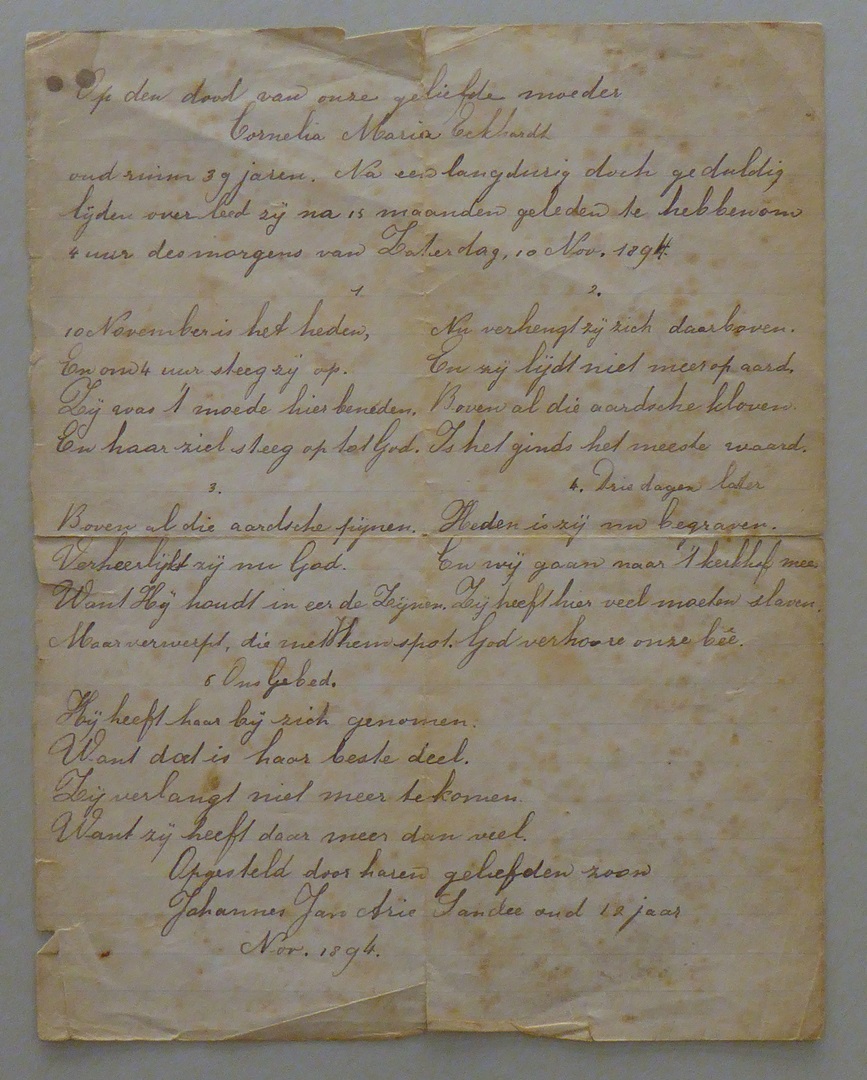 Op den dood van onze geliefde moeder
Cornelia Maria Eckhardt
oud ruim 39 jaren. Na een langdurig doch geduldig
lijden overleed zij na 15 maanden geleden te hebben om
4 uur des morgens van Zaterdag, 10 Nov. 1894.
1
10 November is het heden,
En om 4 uur steeg zij op.
Zij was 't moede hier beneden.
En haar ziel steeg op tot God.
2.
Nu verhengt zij zich daarboven.
En zij lijdt niet meer op aard.
Boven al die aardsche kloven.
Is het ginds het meeste waard.
3.
Boven al die aardsche pijnen.
Verheerlijkt zij nu God.
Want Hij houdt in eer de Zijnen.
Maar verwerpt, die met Hem spot.
4. Drie dagen later
Heden is zij nu begraven.
En wij gaan naar 't kerkhof mee
Zij heeft hier veel moeten slaven.
God verhoore onze beê.
5 Ons Gebed.
Hij heeft haar bij zich genomen.
Want dat is haar beste deel.
Zij verlangt niet meer te komen.
Want zij heeft daar meer dan veel.
Opgesteld door haren geliefden zoon
Johannes Jan Arie Sandee oud 12 jaar
Nov. 1894.